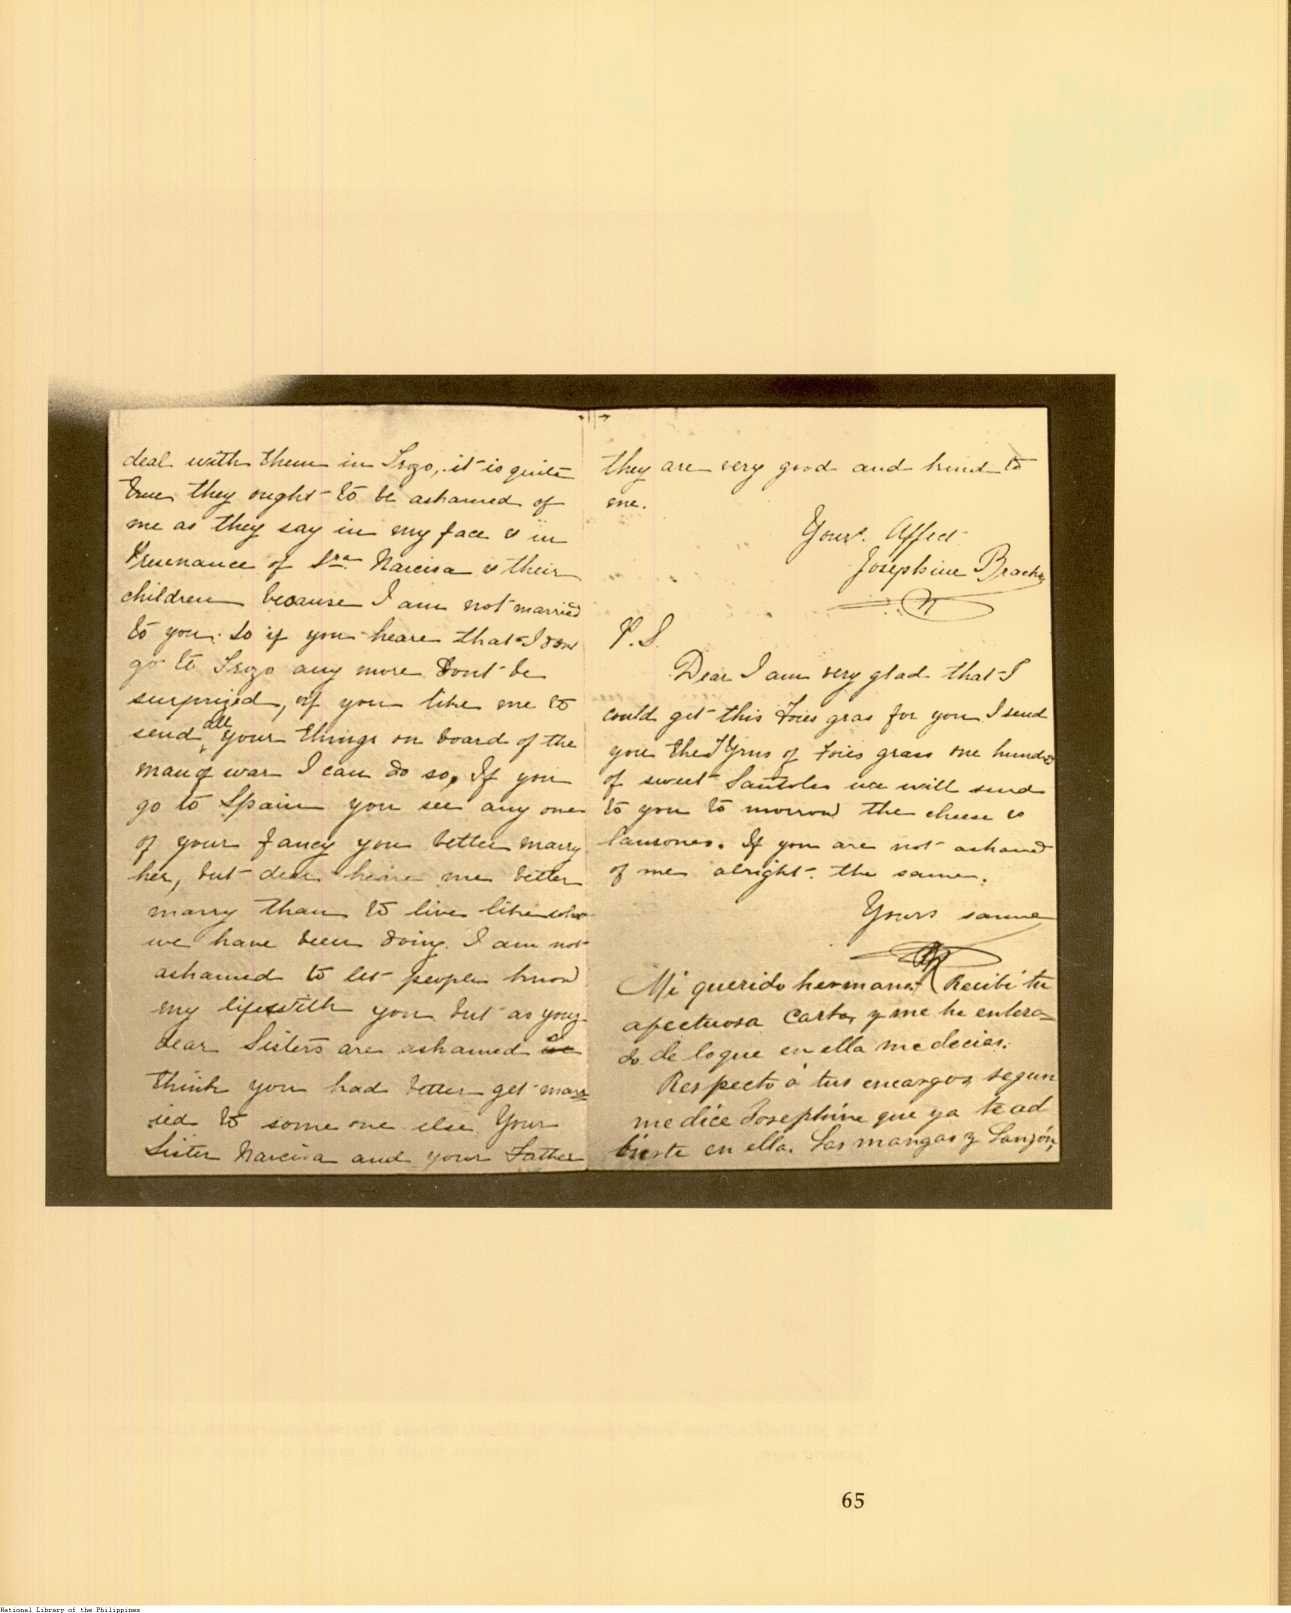 deal with them in Trozo, it is quite
true they ought to be ashamed of
me as they say in my face & in
Presenance of Sra. Narcisa & their
children because I am not married
to you. So if you heare that I dont
go to Trozo any more Dont be
surprized, if you like me to
send all your things on board of the
man of war I can do so, If you
go to Spain you see any one
of your fancy you better marry
her, but dear heare me better
marry than to live like
we have been doing. I am not
ashamed to let people know
my life with you but as your
dear Sisters are ashamed I
think you had better get mar=
ried to some one else. Your
Sister Narcisa and your Father
they are very good and kind to
me.
Yours. Affect
Josephine Bracken
P. S.
Dear I am very glad that I
could get this Foies gras for you I send
you the of Foies grass one hundred
of sweet Santoles we will send
to you to morrow the cheese &
lansones. If you are not ashamed
of me alright. the same.
Yours same
Mi querido hermano: Recibi tu
afectuosa carta, y me he entera=
do de lo que en ella me decias.
Respecto á tus encargos, segun
me dice Josephine que ya te ad
en ella. Las mangas y Lanzón,
65
National Library of the Philippines